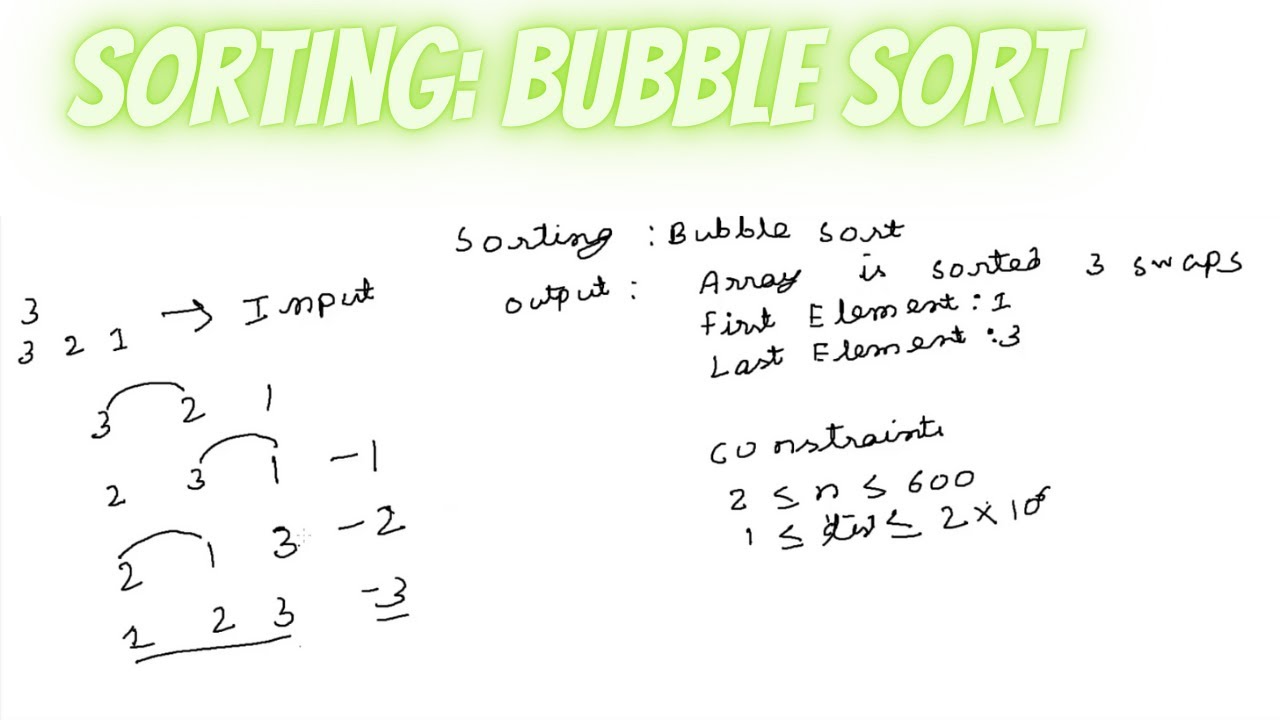 SORTING: BUBBLE SORT
Sorting : Bubble sort
3
3 2 1 → Input
output : Array is sorted 3 swaps
First Element : 1
Last Element : 3
3 2 1
2 3 1 - 1
2 1 3 - 2
1 2 3 - 3
constraints
2 ≤ n ≤ 600
1 ≤ ≤ 2 × 10⁶